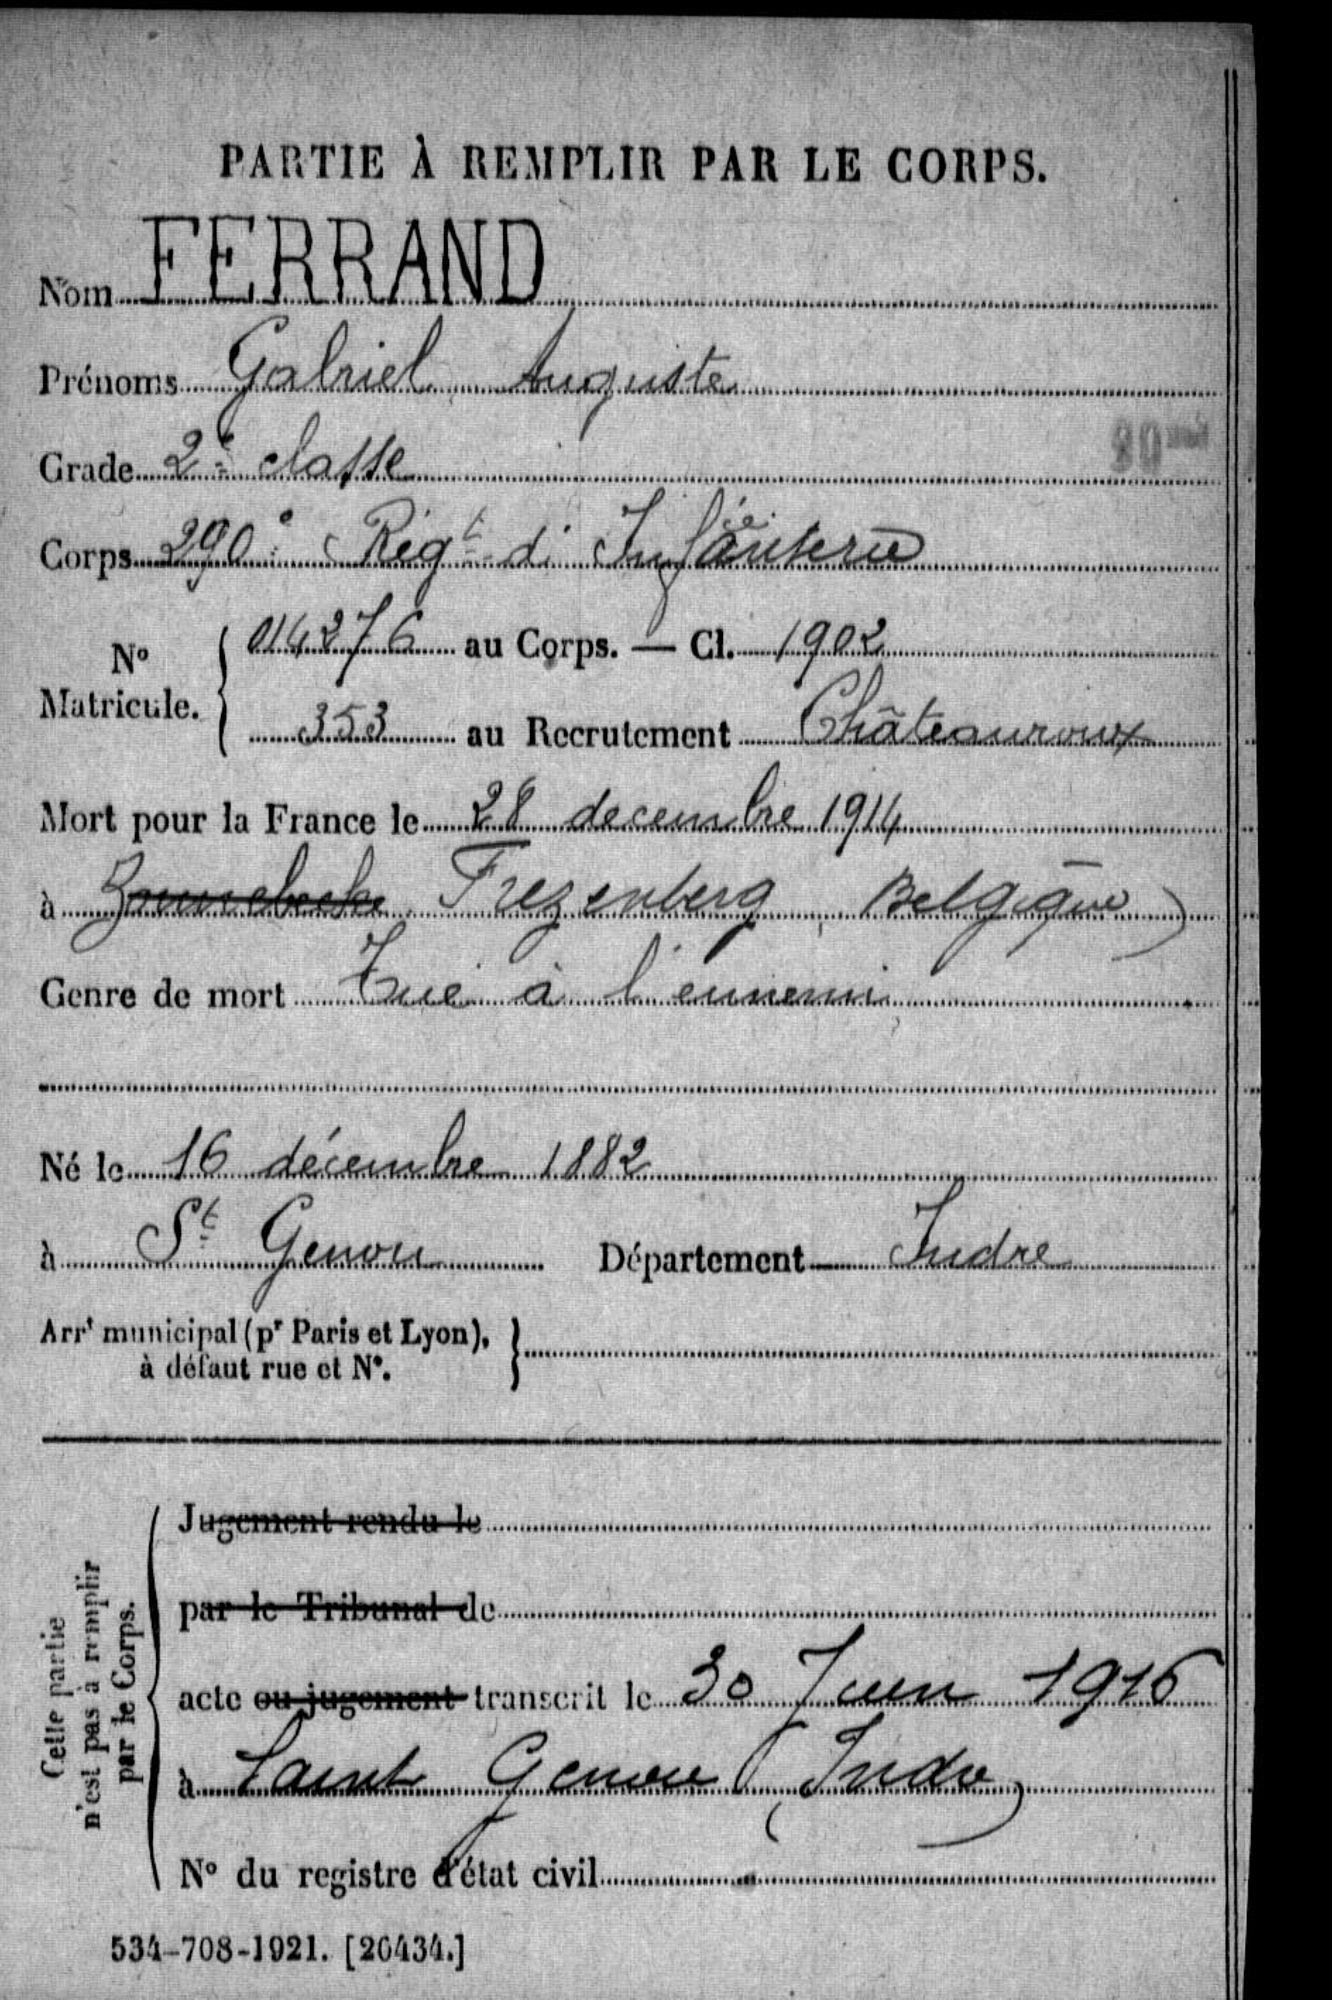 PARTIE À REMPLIR PAR LE CORPS.
Nom FERRAND
Prénoms Gabriel Auguste
Grade 2e classe
Corps 290e Regt d'Infanterie
No Matricule. { 014276 au Corps. — Cl. 1902
353 au Recrutement Châteauroux
Mort pour la France le 28 decembre 1914
à Zonnebecke Frezenberg Belgique)
Genre de mort Tué à l'ennemi
Né le 16 décembre 1882
à St Genou Département Indre
Arrt municipal (pr Paris et Lyon), à défaut rue et No. }
Cette partie n'est pas à remplir par le Corps.
Jugement rendu le
par le Tribunal de
acte ou jugement transcrit le 30 Juin 1916
à Saint Genou (Indre)
No du registre d'état civil
534-708-1921. [26434.]